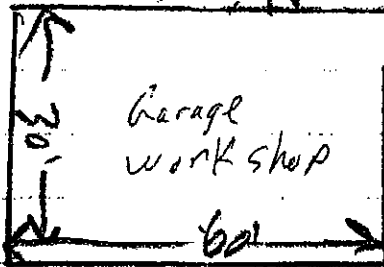 30'
Garage
workshop
60'